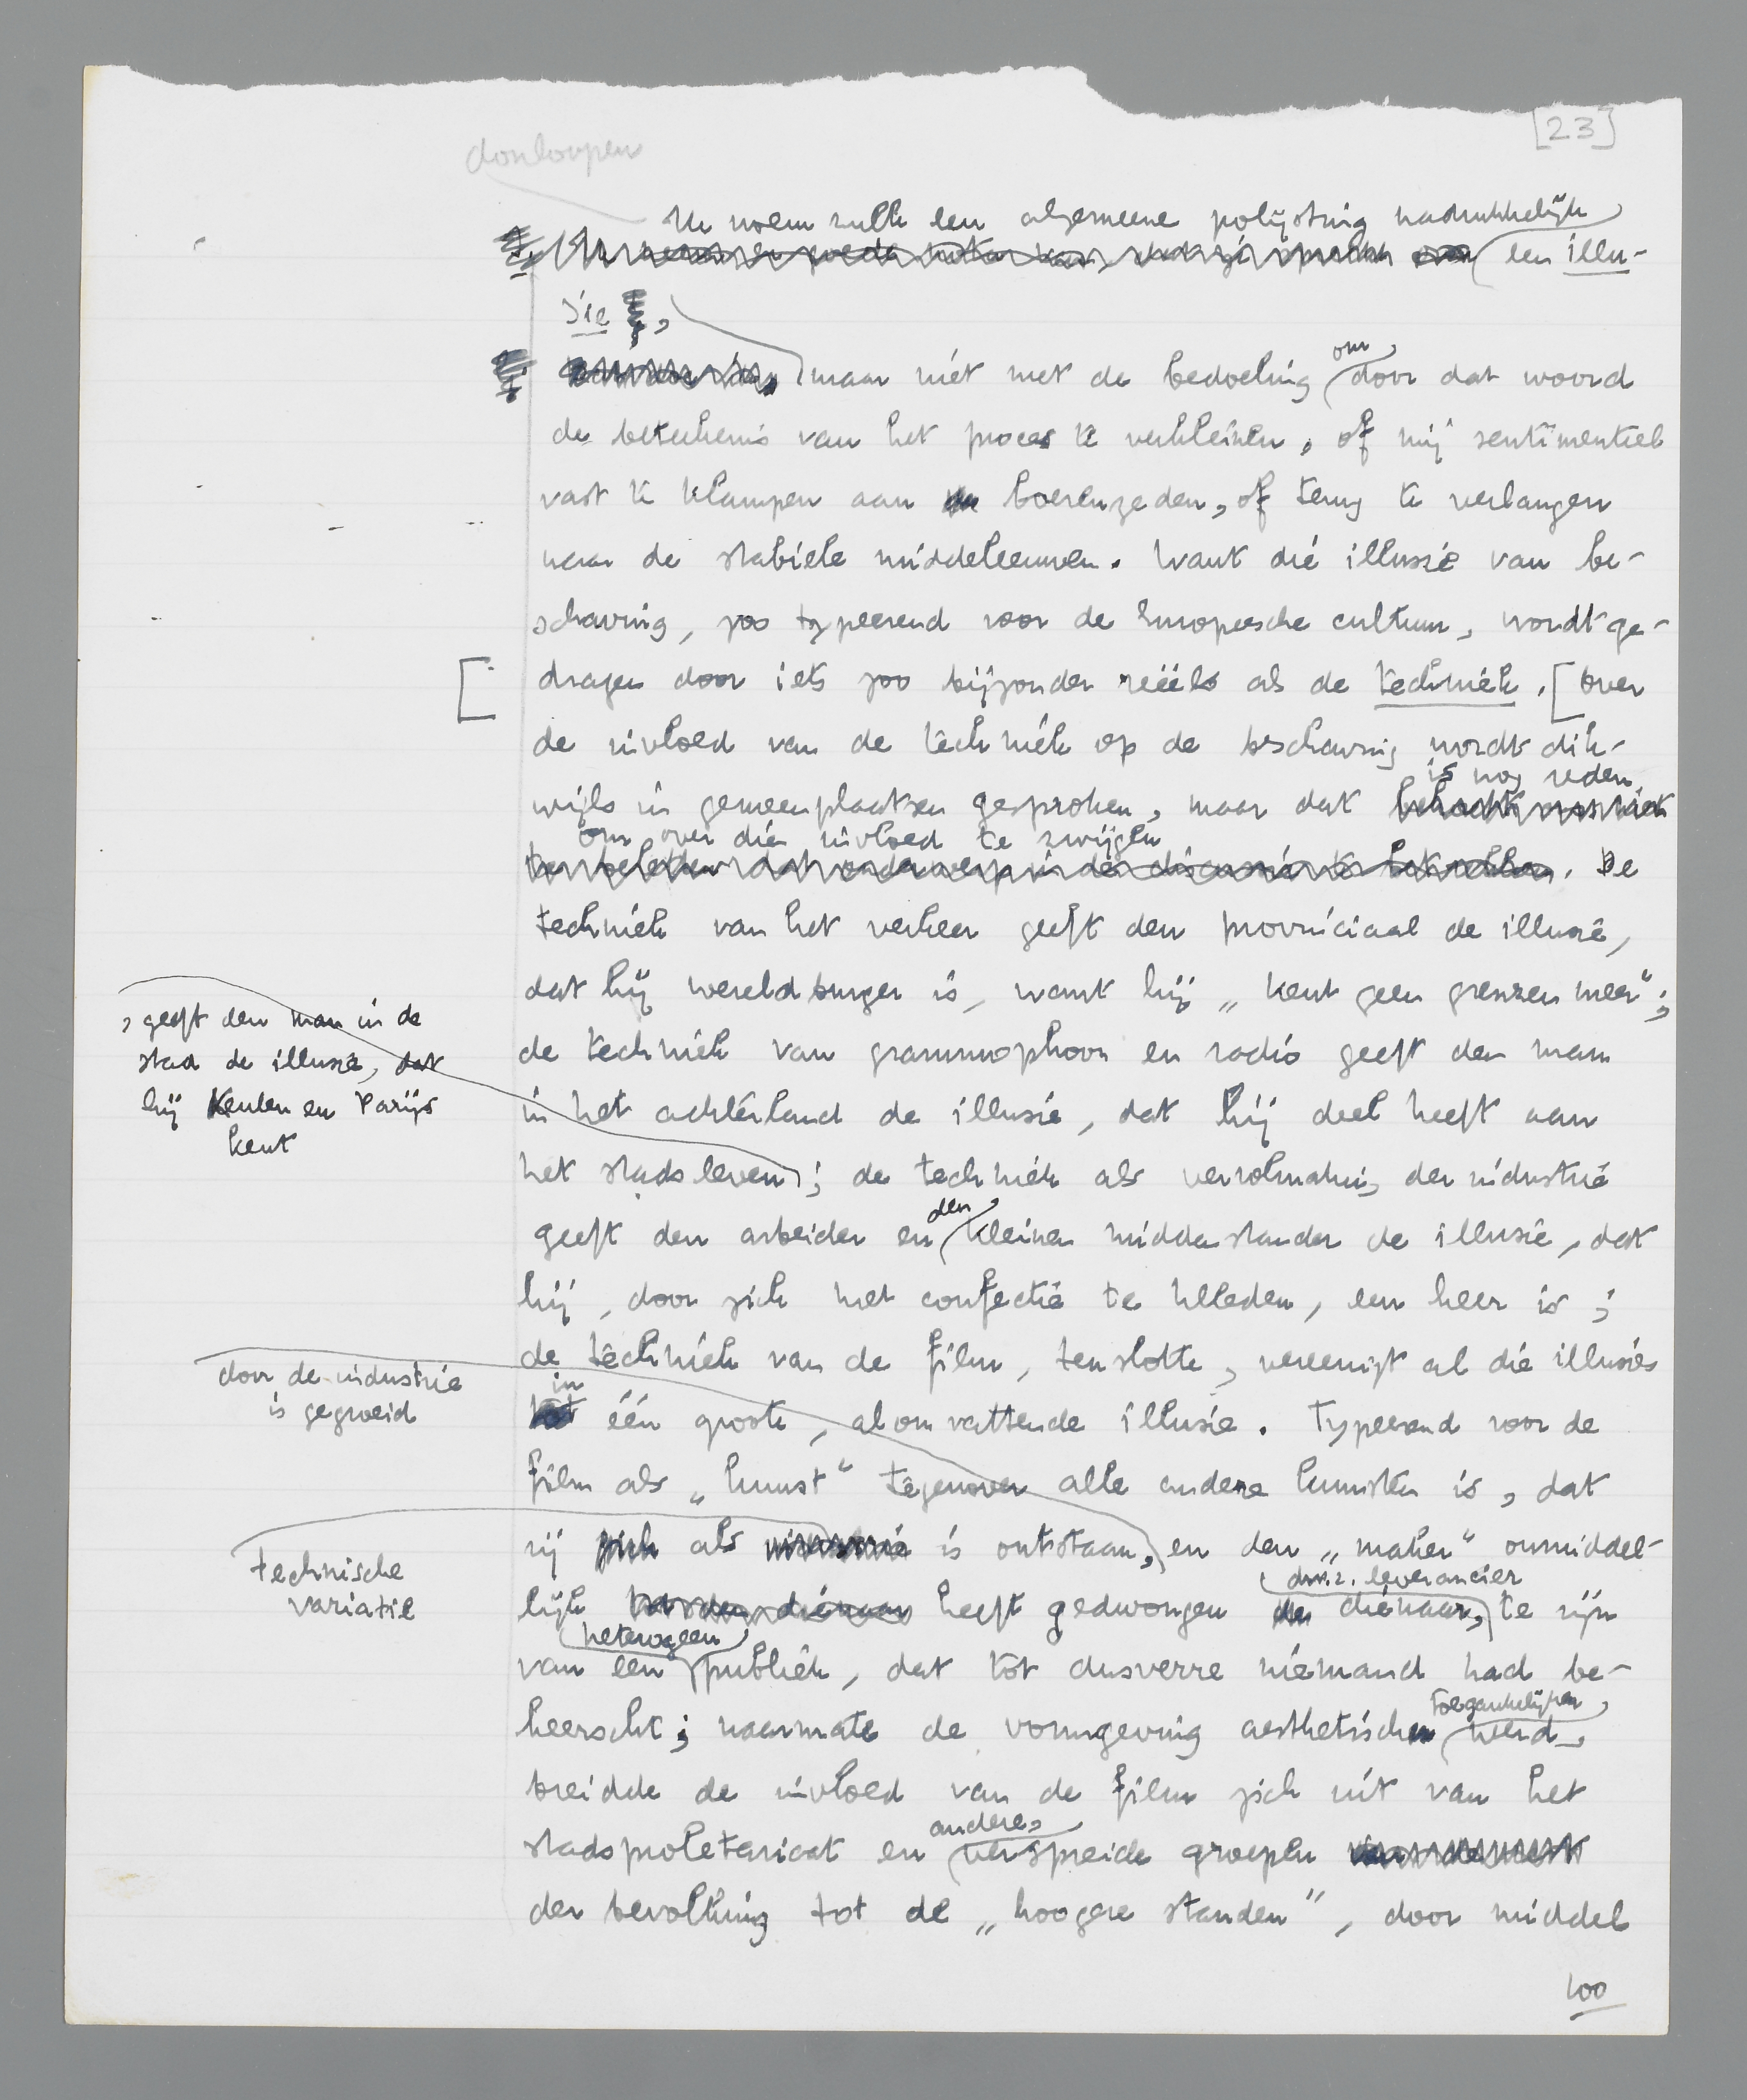 [23]
doorloopen
Ik noem zulk een algemeene polijsting nadrukkelijk
een illu-
sie,
maar niet met de bedoeling om door dat woord
de beteekenis van het proces te verkleinen, of mij sentimenteel
vast te klampen aan boerenzeden, of terug te verlangen
naar de stabiele middeleeuwen. Want die illusie van be-
schaving, zoo typeerend voor de Europeesche cultuur, wordt ge-
dragen door iets zoo bijzonder reëels als de techniek. [Over
de invloed van de techniek op de beschaving wordt dik-
wijls in gemeenplaatsen gesproken, maar dat is nog reden
om over die invloed te zwijgen. De
techniek van het verkeer geeft den provinciaal de illusie,
dat hij wereldburger is, want hij „kent geen grenzen meer";
de techniek van grammophoon en radio geeft den man
in het achterland de illusie, dat hij deel heeft aan
het stadsleven, geeft den man in de
stad de illusie, dat
hij Keulen en Parijs
kent
; de techniek als vervolmaking der industrie
geeft den arbeider en den kleinen middenstander de illusie, dat
hij, door zich met confectie te kleeden, een heer is;
de techniek van de film, tenslotte, vereenigt al die illusies
in één groote, alomvattende illusie. Typeerend voor de
film als „kunst" tegenover alle andere kunsten is, dat
zij als technische
variatie
is ontstaan, door de industrie
is gegroeid
en den „maker" onmiddel-
lijk heeft gedwongen dienaar, d.w.z. leverancier te zijn
van een heterogeen publiek, dat tot dusverre niemand had be-
heerscht; naarmate de vormgeving aesthetisch toegankelijker werd,
breidde de invloed van de film zich uit van het
stadsproletariaat en andere, verspreide groepen
der bevolking tot de „hoogere standen", door middel
100